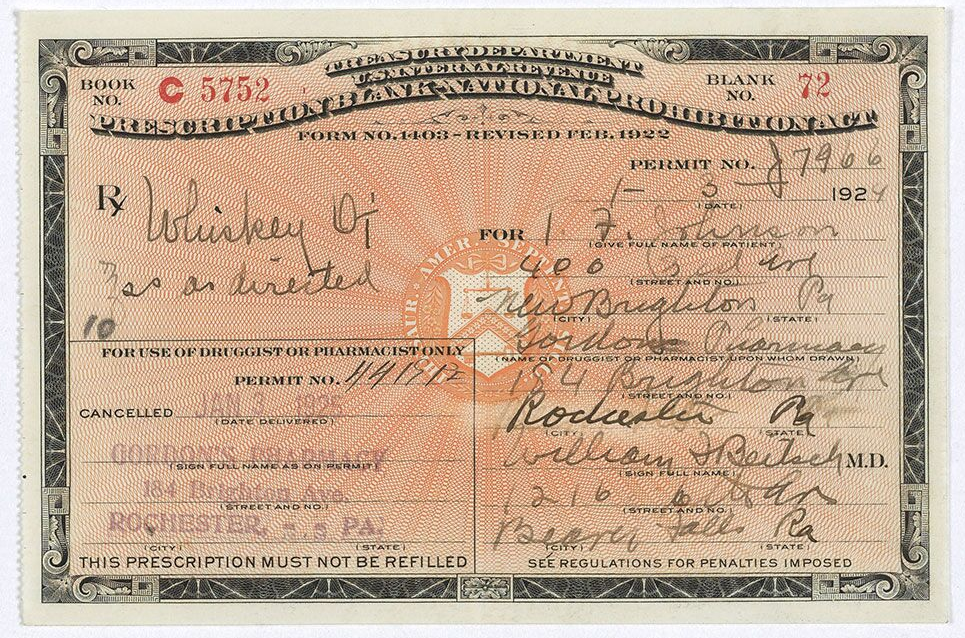 TREASURY DEPARTMENT
U.S. INTERNAL REVENUE
PRESCRIPTION BLANK-NATIONAL PROHIBITION ACT
FORM NO. 1403-REVISED FEB. 1922
BOOK NO. C 5752
BLANK NO. 72
PERMIT NO. 87966
(DATE) 192
Rx Whiskey
ss as directed
10
FOR F. Johnson
(GIVE FULL NAME OF PATIENT)
400
(STREET AND NO.)
New Brighton Pa
(CITY) (STATE)
Gordons Pharmacy
(NAME OF DRUGGIST OR PHARMACIST UPON WHOM DRAWN)
184 Brighton Ave
(STREET AND NO.)
Rochester Pa
(CITY) (STATE)
William J M.D.
(SIGN FULL NAME)
1216
(STREET AND NO.)
Beaver Falls Pa
(CITY) (STATE)
SEE REGULATIONS FOR PENALTIES IMPOSED
FOR USE OF DRUGGIST OR PHARMACIST ONLY
PERMIT NO.
CANCELLED JAN
(DATE DELIVERED)
GORDON'S PHARMACY
(SIGN FULL NAME AS ON PERMIT)
184 Brighton Ave.
(STREET AND NO.)
ROCHESTER, PA.
(CITY) (STATE)
THIS PRESCRIPTION MUST NOT BE REFILLED